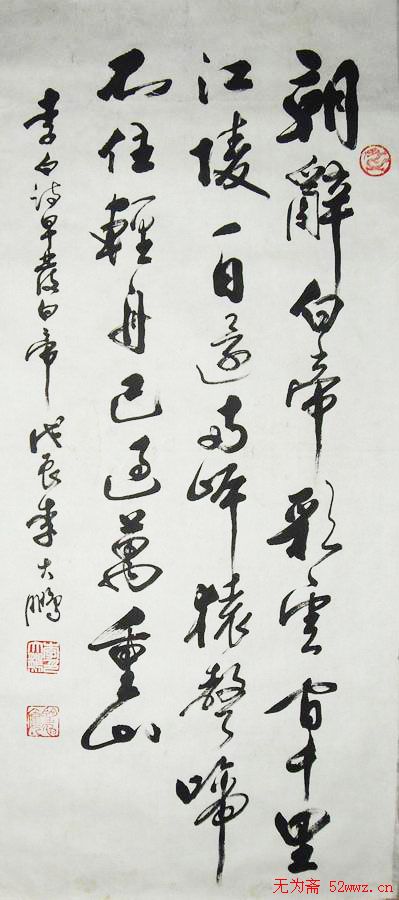 朝辭白帝彩雲間千里
江陵一日還兩岸猿聲啼
不住輕舟已過萬重山
李白詩早發白帝 戊辰李大鵬
无为斋 52wwz.cn